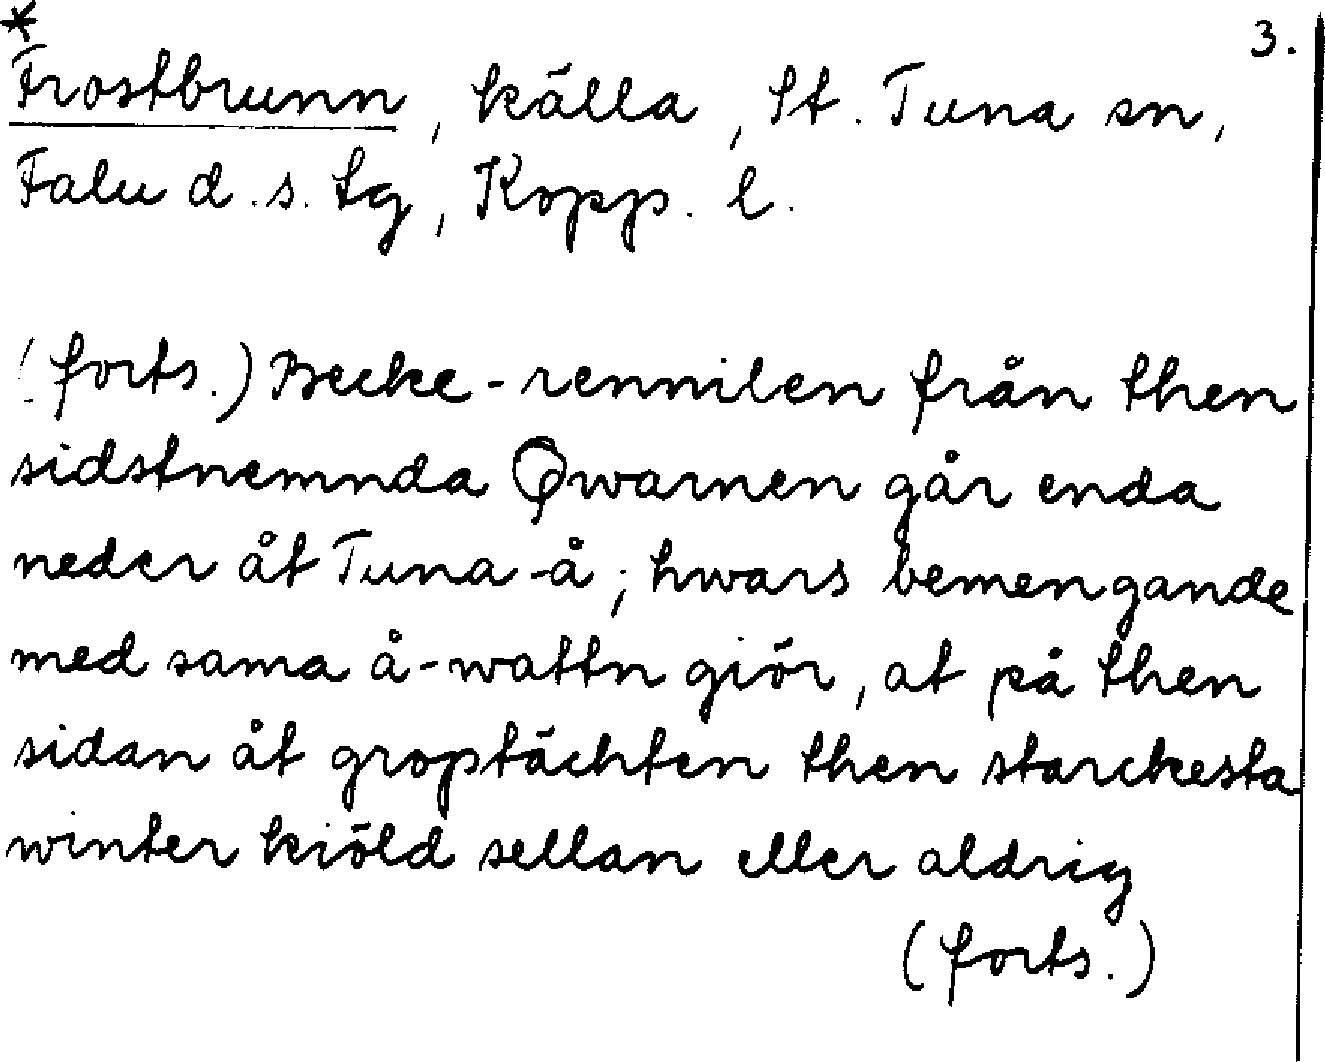 * 3.
Frostbrunn, källa, St. Tuna sn,
Falu d.s. tg, Kopp. l.
(forts.) Becke-rennilen från then
sidstnemnda Qwarnen går enda
neder åt Tuna-å; hwars bemengande
med sama å-wattn giör, at på then
sidan åt groptächten then starckesta
winter kiöld sellan eller aldrig
(forts.)